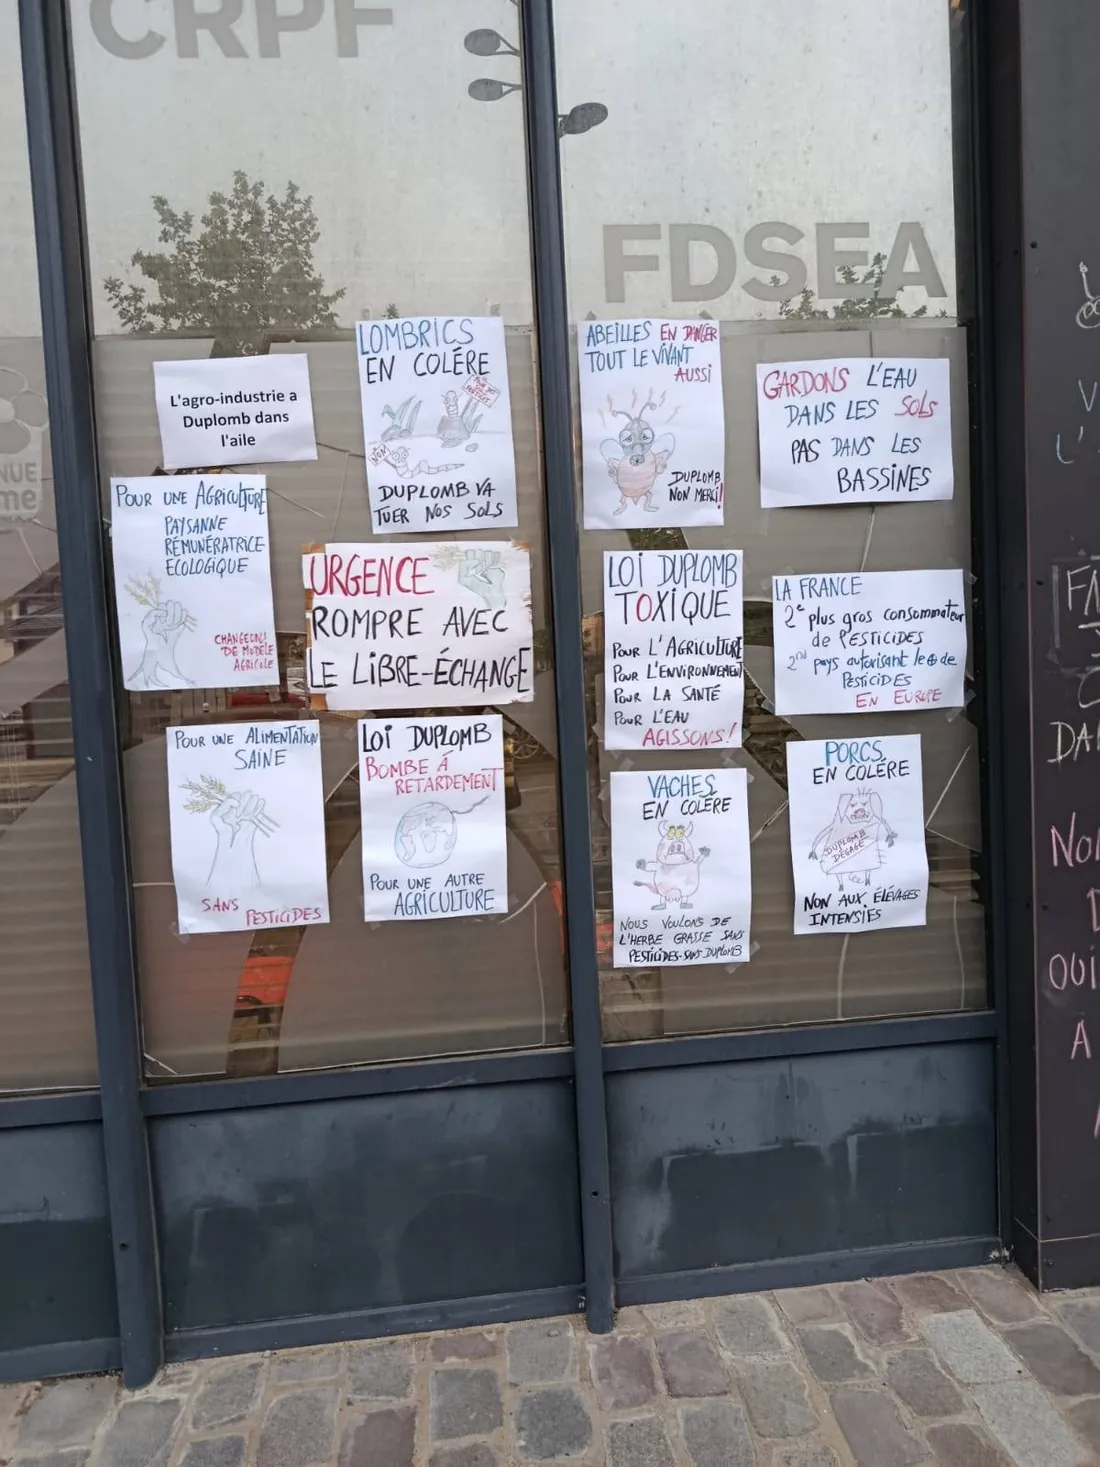 CRPF
FDSEA
L'agro-industrie a
Duplomb dans
l'aile
LOMBRICS
EN COLÉRE
NON
DUPLOMB VA
TUER NOS SOLS
ABEILLES EN DANGER
TOUT LE VIVANT
AUSSI
DUPLOMB
NON MERCI!
GARDONS L'EAU
DANS LES SOLS
PAS DANS LES
BASSINES
POUR UNE AGRICULTURE
PAYSANNE
RÉMUNÉRATRICE
ECOLOGIQUE
CHANGEONS
DE MODÈLE
AGRICOLE
URGENCE
ROMPRE AVEC
LE LIBRE-ÉCHANGE
LOI DUPLOMB
TOXIQUE
POUR L'AGRICULTURE
POUR L'ENVIRONNEMENT
POUR LA SANTÉ
POUR L'EAU
AGISSONS!
LA FRANCE
2e plus gros consommateur
de PESTICIDES
2nd pays autorisant le + de
PESTICIDES
EN EUROPE
POUR UNE ALIMENTATION
SAINE
SANS PESTICIDES
LOI DUPLOMB
BOMBE À
RETARDEMENT
POUR UNE AUTRE
AGRICULTURE
VACHES
EN COLÈRE
NOUS VOULONS DE
L'HERBE GRASSE SANS
PESTICIDES-SANS DUPLOMB
PORCS
EN COLÈRE
DUPLOMB
DÉGAGE
NON AUX ÉLÉVAGES
INTENSIFS
NUE
me
OUI
A